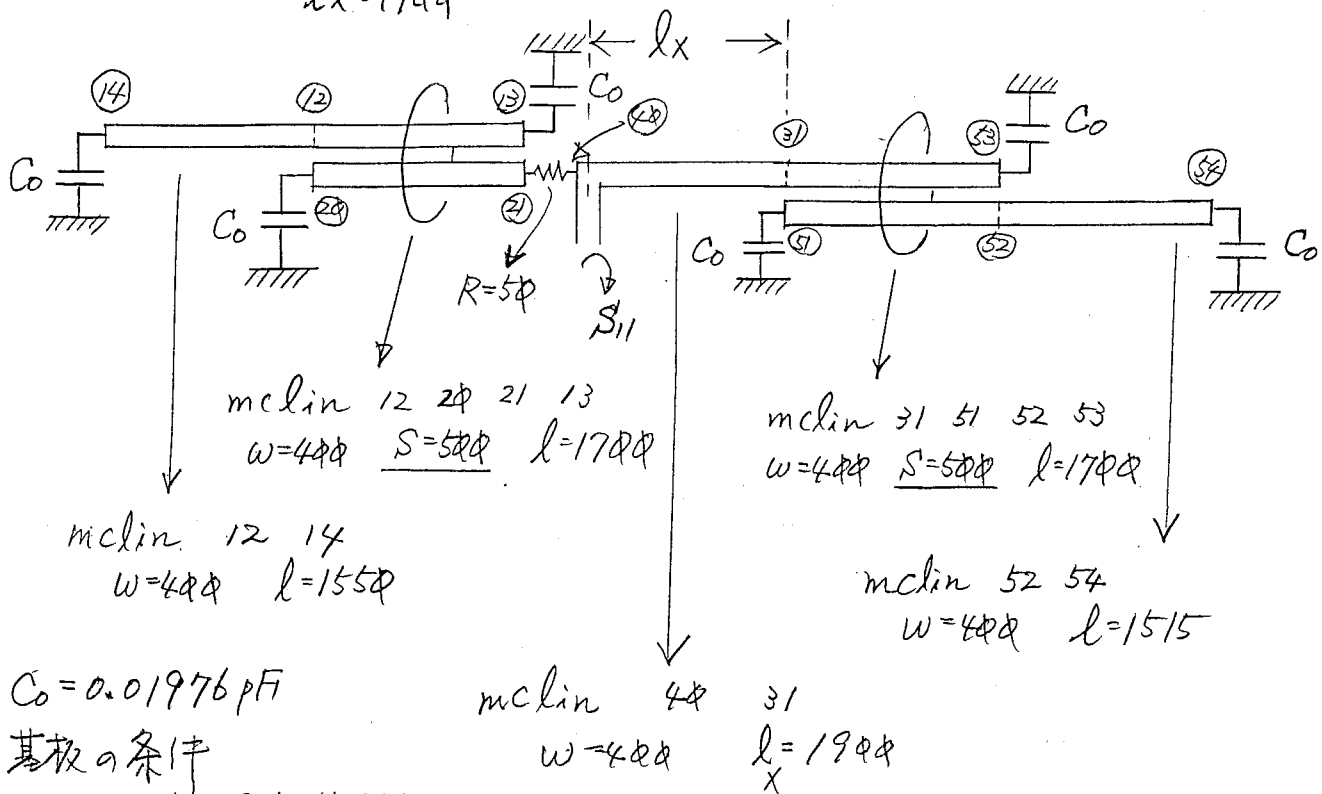 lx
C₀
⑭
⑫
⑬
㊵
㉛
53
C₀
54
C₀
C₀
⑳
㉑
R=50
S₁₁
C₀
51
52
C₀
mclin 12 20 21 13
w=400 S=500 l=1700
mclin 31 51 52 53
w=400 S=500 l=1700
mclin. 12 14
w=400 l=1550
mclin 52 54
w=400 l=1515
C₀=0.01976pF
mclin 40 31
基板の条件
w=400 lx=1900